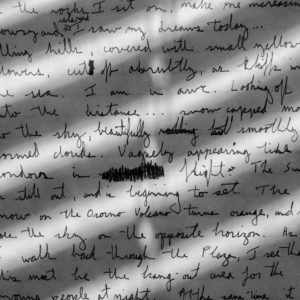 the rocks I sit on, make me increasin
relaxed
I saw my dreams today...
lling hills, covered with small yellow
lowers, cut off abruptly, as cliffs in
he sea. I am in awe. Looking off
to the distance... snow capped m
to the sky, beautifully smoothly
ormed clouds. Vaguely appearing like
condors in flight. The Sun
still out, and is beginning to set. The
snow on the Osorno Volcano turns orange, and
the sky on the opposite horizon. As
walk back through the Plaza, I see tha
his must be the hang-out area for the
young people at night. At the same time it